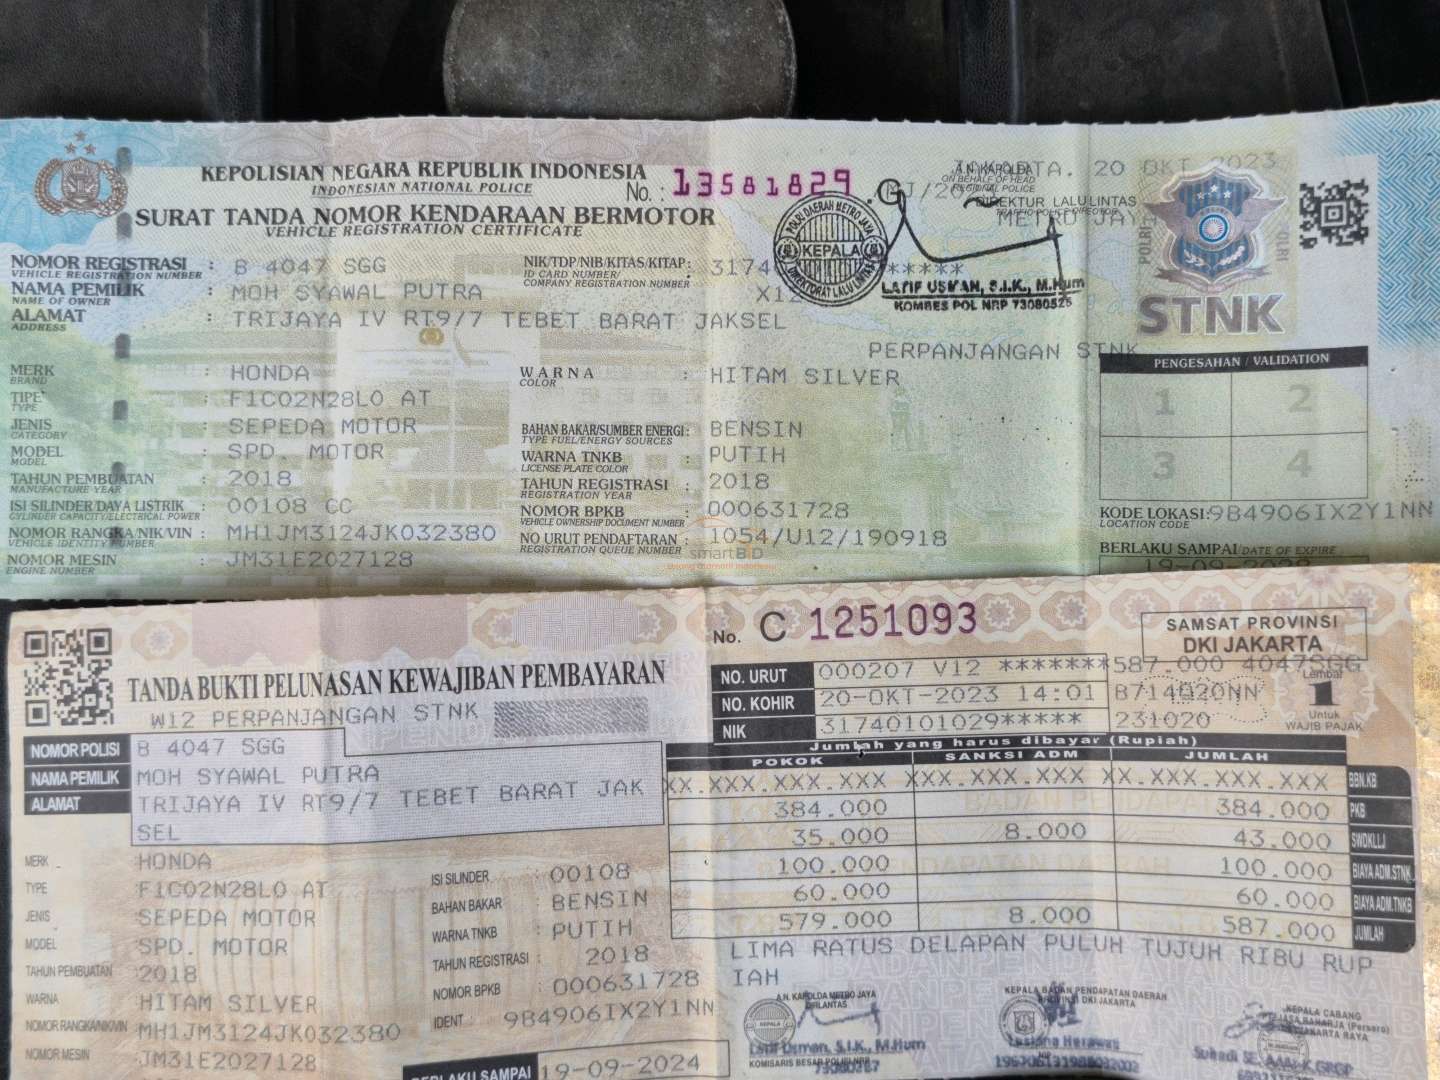 KEPOLISIAN NEGARA REPUBLIK INDONESIA
INDONESIAN NATIONAL POLICE
No. : 13581829
SURAT TANDA NOMOR KENDARAAN BERMOTOR
VEHICLE REGISTRATION CERTIFICATE
JAKARTA. 20 OKT 2023
A.N. KAPOLDA
ON BEHALF OF HEAD
REGIONAL POLICE
DIREKTUR LALU LINTAS
TRAFFIC POLICE DIRECTOR
METRO JAYA
POLRI DAERAH METRO JAYA
KEPALA
DIREKTORAT LALU LINTAS
LATIF USMAN, S.I.K., M.Hum
KOMBES POL NRP 73080525
POLRI
STNK
NOMOR REGISTRASI : B 4047 SGG
VEHICLE REGISTRATION NUMBER
NAMA PEMILIK : MOH SYAWAL PUTRA
NAME OF OWNER
ALAMAT : TRIJAYA IV RT9/7 TEBET BARAT JAKSEL
ADDRESS
NIK/TDP/NIB/KITAS/KITAP :
ID CARD NUMBER/
COMPANY REGISTRATION NUMBER
PERPANJANGAN STNK
MERK : HONDA
BRAND
TIPE : F1C02N28L0 AT
TYPE
JENIS : SEPEDA MOTOR
CATEGORY
MODEL : SPD. MOTOR
MODEL
TAHUN PEMBUATAN : 2018
MANUFACTURE YEAR
ISI SILINDER/DAYA LISTRIK : 00108 CC
CYLINDER CAPACITY/ELECTRICAL POWER
NOMOR RANGKA/NIK/VIN : MH1JM3124JK032380
VEHICLE IDENTITY NUMBER
NOMOR MESIN : JM31E2027128
ENGINE NUMBER
WARNA : HITAM SILVER
COLOR
BAHAN BAKAR/SUMBER ENERGI : BENSIN
TYPE FUEL/ENERGY SOURCES
WARNA TNKB : PUTIH
LICENSE PLATE COLOR
TAHUN REGISTRASI : 2018
REGISTRATION YEAR
NOMOR BPKB : 000631728
VEHICLE OWNERSHIP DOCUMENT NUMBER
NO URUT PENDAFTARAN : 1054/U12/190918
REGISTRATION QUEUE NUMBER
smartBID
PENGESAHAN / VALIDATION
1 2
3 4
KODE LOKASI : 984906IX2Y1NN
LOCATION CODE
BERLAKU SAMPAI/DATE OF EXPIRE
19-09-2028
TANDA BUKTI PELUNASAN KEWAJIBAN PEMBAYARAN
W12 PERPANJANGAN STNK
No. C 1251093
SAMSAT PROVINSI
DKI JAKARTA
NO. URUT 000207 V12 *******587.000 4047SGG
NO. KOHIR 20-OKT-2023 14:01 B714020NN
NIK 31740101029***** 231020
Lembar
1
Untuk
WAJIB PAJAK
NOMOR POLISI B 4047 SGG
NAMA PEMILIK MOH SYAWAL PUTRA
ALAMAT TRIJAYA IV RT9/7 TEBET BARAT JAK
SEL
MERK HONDA
TYPE F1C02N28L0 AT
JENIS SEPEDA MOTOR
MODEL SPD. MOTOR
TAHUN PEMBUATAN 2018
WARNA HITAM SILVER
NOMOR RANGKA/NIK/VIN MH1JM3124JK032380
NOMOR MESIN JM31E2027128
ISI SILINDER : 00108
BAHAN BAKAR : BENSIN
WARNA TNKB : PUTIH
TAHUN REGISTRASI : 2018
NOMOR BPKB : 000631728
IDENT 984906IX2Y1NN
BERLAKU SAMPAI 19-09-2024
Jumlah yang harus dibayar (Rupiah)
POKOK SANKSI ADM JUMLAH
XX.XXX.XXX.XXX XX.XXX.XXX.XXX XX.XXX.XXX.XXX BBN.KB
384.000 384.000 PKB
35.000 8.000 43.000 SWDKLLJ
100.000 100.000 BIAYA ADM.STNK
60.000 60.000 BIAYA ADM.TNKB
579.000 8.000 587.000 JUMLAH
LIMA RATUS DELAPAN PULUH TUJUH RIBU RUP
IAH
A.N. KAPOLDA METRO JAYA
DIRLANTAS
KEPALA
Latif Usman, S.I.K., M.Hum
KOMISARIS BESAR POLISI NRP
KEPALA BADAN PENDAPATAN DAERAH
PROVINSI DKI JAKARTA
Lusiana Herawati
KEPALA CABANG
PT JASA RAHARJA (Persero)
JAKARTA RAYA